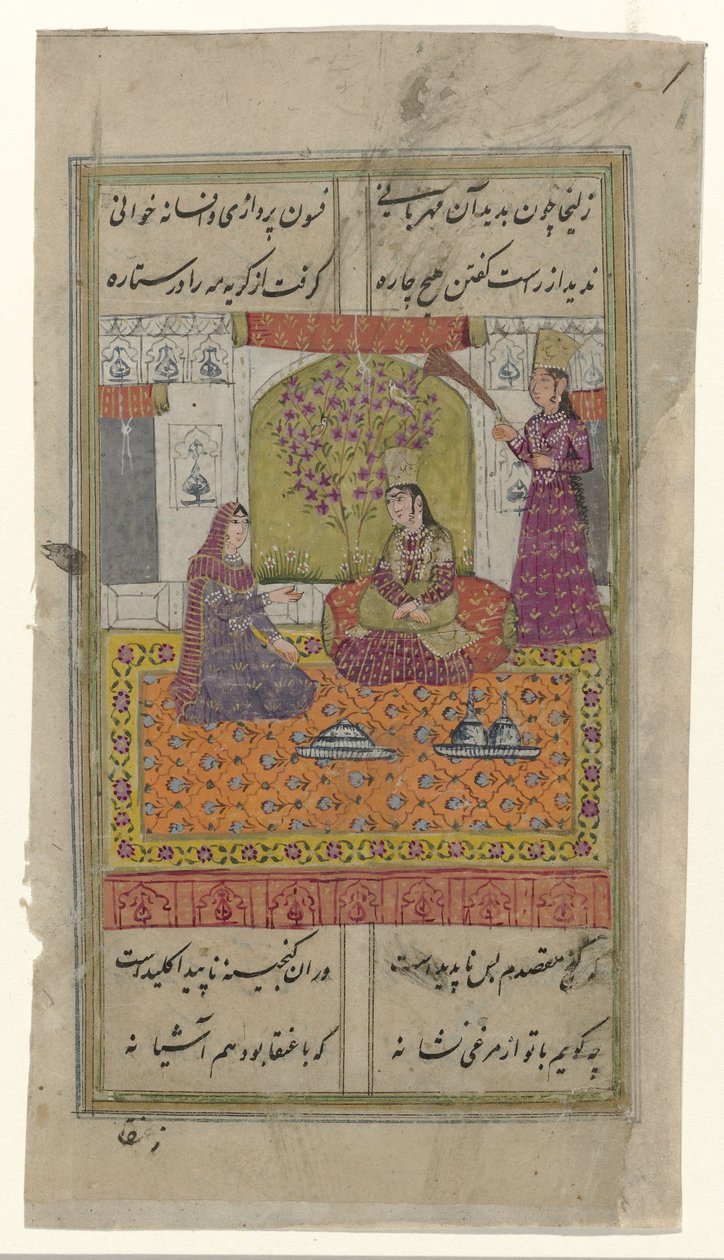 زلیخا چون بدید آن مهربانی فسون پردازی و افسانه خوانی
ندید از راست گفتن هیچ چاره گرفت از گریه مه را در ستاره
که گنج مقصدم بس ناپدید است وران گنجینه ناپیدا کلید است
چه گویم با تو از مرغی نشانه که با عنقا بود هم آشیانه
ز عنقا